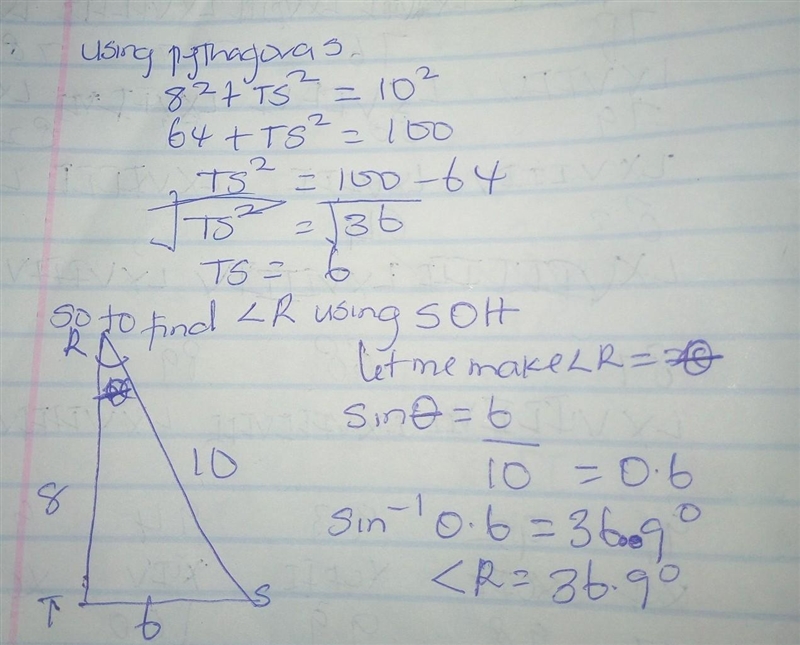 using pythagoras.
8² + TS² = 10²
64 + TS² = 100
TS² = 100 - 64
√TS² = √36
TS = 6
so to find ∠R using SOH
R
let me make ∠R = θ
θ
sinθ = 6
10 = 0.6
10
8
sin⁻¹ 0.6 = 36.9°
∠R = 36.9°
T
S
6